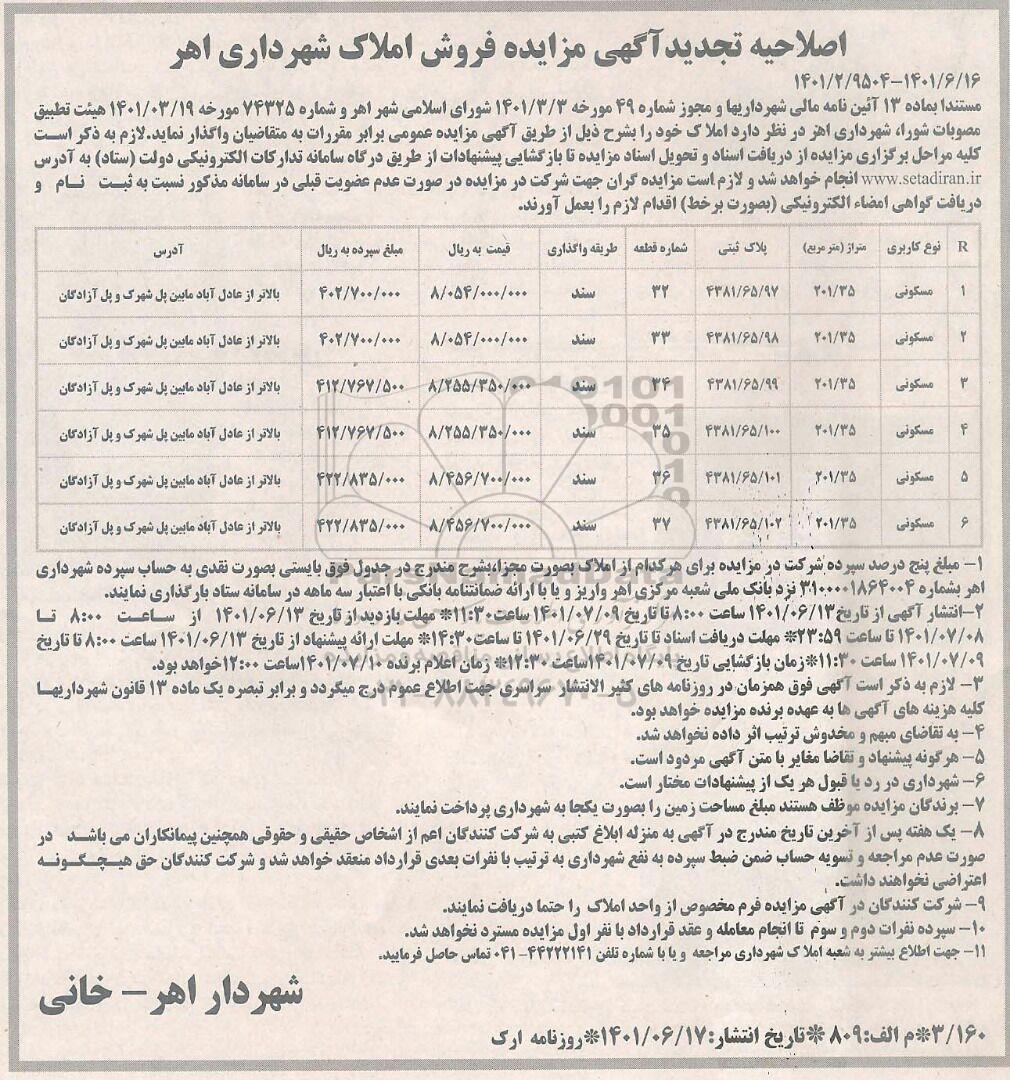 اصلاحیه تجدیدآگهی مزایده فروش املاک شهرداری اهر
۱۴۰۱/۲/۹۵۰۴-۱۴۰۱/۶/۱۶
مستندا بماده ۱۳ آئین نامه مالی شهرداریها و مجوز شماره ۴۹ مورخه ۱۴۰۱/۳/۳ شورای اسلامی شهر اهر و شماره ۷۴۳۲۵ مورخه ۱۴۰۱/۰۳/۱۹ هیئت تطبیق
مصوبات شورا، شهرداری اهر در نظر دارد املاک خود را بشرح ذیل از طریق آگهی مزایده عمومی برابر مقررات به متقاضیان واگذار نماید.لازم به ذکر است
کلیه مراحل برگزاری مزایده از دریافت اسناد و تحویل اسناد مزایده تا بازگشایی پیشنهادات از طریق درگاه سامانه تدارکات الکترونیکی دولت (ستاد) به آدرس
www.setadiran.ir انجام خواهد شد و لازم است مزایده گران جهت شرکت در مزایده در صورت عدم عضویت قبلی در سامانه مذکور نسبت به ثبت نام و
دریافت گواهی امضاء الکترونیکی (بصورت برخط) اقدام لازم را بعمل آورند.
R نوع کاربری متراژ (متر مربع) پلاک ثبتی شماره قطعه طریقه واگذاری قیمت به ریال مبلغ سپرده به ریال آدرس
۱ مسکونی ۲۰۱/۳۵ ۴۳۸۱/۶۵/۹۷ ۳۲ سند ۸/۰۵۴/۰۰۰/۰۰۰ ۴۰۲/۷۰۰/۰۰۰ بالاتر از عادل آباد مابین پل شهرک و پل آزادگان
۲ مسکونی ۲۰۱/۳۵ ۴۳۸۱/۶۵/۹۸ ۳۳ سند ۸/۰۵۴/۰۰۰/۰۰۰ ۴۰۲/۷۰۰/۰۰۰ بالاتر از عادل آباد مابین پل شهرک و پل آزادگان
۳ مسکونی ۲۰۱/۳۵ ۴۳۸۱/۶۵/۹۹ ۳۴ سند ۸/۲۵۵/۳۵۰/۰۰۰ ۴۱۲/۷۶۷/۵۰۰ بالاتر از عادل آباد مابین پل شهرک و پل آزادگان
۴ مسکونی ۲۰۱/۳۵ ۴۳۸۱/۶۵/۱۰۰ ۳۵ سند ۸/۲۵۵/۳۵۰/۰۰۰ ۴۱۲/۷۶۷/۵۰۰ بالاتر از عادل آباد مابین پل شهرک و پل آزادگان
۵ مسکونی ۲۰۱/۳۵ ۴۳۸۱/۶۵/۱۰۱ ۳۶ سند ۸/۴۵۶/۷۰۰/۰۰۰ ۴۲۲/۸۳۵/۰۰۰ بالاتر از عادل آباد مابین پل شهرک و پل آزادگان
۶ مسکونی ۲۰۱/۳۵ ۴۳۸۱/۶۵/۱۰۲ ۳۷ سند ۸/۴۵۶/۷۰۰/۰۰۰ ۴۲۲/۸۳۵/۰۰۰ بالاتر از عادل آباد مابین پل شهرک و پل آزادگان
۱- مبلغ پنج درصد سپرده شرکت در مزایده برای هرکدام از املاک بصورت مجزا،بشرح مندرج در جدول فوق بایستی بصورت نقدی به حساب سپرده شهرداری
اهر بشماره ۳۱۰۰۰۰۱۸۶۴۰۰۴ نزد بانک ملی شعبه مرکزی اهر واریز و یا با ارائه ضمانتنامه بانکی با اعتبار سه ماهه در سامانه ستاد بارگذاری نمایند.
۲-انتشار آگهی از تاریخ۱۴۰۱/۰۶/۱۳ ساعت ۸:۰۰ تا تاریخ ۱۴۰۱/۰۷/۰۹ ساعت۱۱:۳۰* مهلت بازدید از تاریخ ۱۴۰۱/۰۶/۱۳ از ساعت ۸:۰۰ تا
۱۴۰۱/۰۷/۰۸ تا ساعت ۲۳:۵۹* مهلت دریافت اسناد تا تاریخ ۱۴۰۱/۰۶/۲۹ تا ساعت۱۴:۳۰* مهلت ارائه پیشنهاد از تاریخ ۱۴۰۱/۰۶/۱۳ ساعت ۸:۰۰ تا تاریخ
۱۴۰۱/۰۷/۰۹ ساعت ۱۱:۳۰*زمان بازگشایی تاریخ ۱۴۰۱/۰۷/۰۹ساعت ۱۲:۳۰* زمان اعلام برنده ۱۴۰۱/۰۷/۱۰ساعت ۱۲:۰۰خواهد بود.
۳- لازم به ذکر است آگهی فوق همزمان در روزنامه های کثیر الانتشار سراسری جهت اطلاع عموم درج میگردد و برابر تبصره یک ماده ۱۳ قانون شهرداریها
کلیه هزینه های آگهی ها به عهده برنده مزایده خواهد بود.
۴- به تقاضای مبهم و مخدوش ترتیب اثر داده نخواهد شد.
۵- هرگونه پیشنهاد و تقاضا مغایر با متن آگهی مردود است.
۶- شهرداری در رد یا قبول هر یک از پیشنهادات مختار است.
۷- برندگان مزایده موظف هستند مبلغ مساحت زمین را بصورت یکجا به شهرداری پرداخت نمایند.
۸- یک هفته پس از آخرین تاریخ مندرج در آگهی به منزله ابلاغ کتبی به شرکت کنندگان اعم از اشخاص حقیقی و حقوقی همچنین پیمانکاران می باشد در
صورت عدم مراجعه و تسویه حساب ضمن ضبط سپرده به نفع شهرداری به ترتیب با نفرات بعدی قرارداد منعقد خواهد شد و شرکت کنندگان حق هیچگونه
اعتراضی نخواهند داشت.
۹- شرکت کنندگان در آگهی مزایده فرم مخصوص از واحد املاک را حتما دریافت نمایند.
۱۰- سپرده نفرات دوم و سوم تا انجام معامله و عقد قرارداد با نفر اول مزایده مسترد نخواهد شد.
۱۱- جهت اطلاع بیشتر به شعبه املاک شهرداری مراجعه و یا با شماره تلفن ۴۴۲۲۲۱۴۱-۰۴۱ تماس حاصل فرمایید.
شهردار اهر – خانی
۳/۱۶۰*م الف:۸۰۹ *تاریخ انتشار:۱۴۰۱/۰۶/۱۷*روزنامه ارک